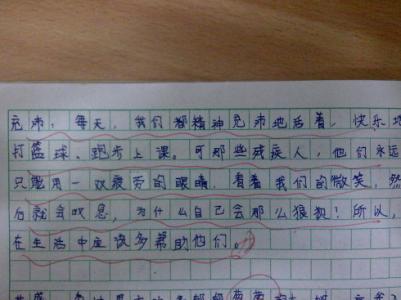 充沛，每天，我们都精神充沛地活着，快乐地
打篮球、跑步上课。可那些残疾人，他们永远
只愿用一双疲劳的眼睛，看着我们的微笑，然
后就会叹息，为什么自己会那么狼狈！所以，
在生活中应该多帮助他们。